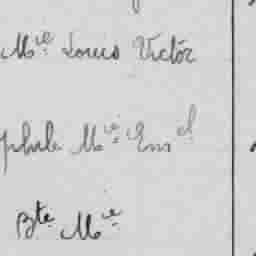 Mie Louis Victor
phile Mie Emel
Bte Mie